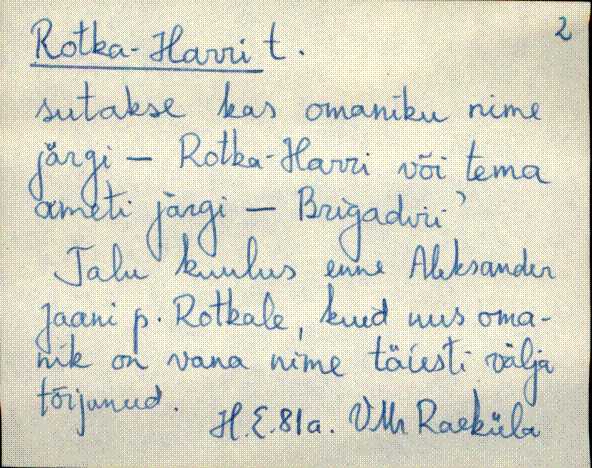 2
Rotka-Harri t.
sutakse kas omaniku nime
järgi – Rotka-Harri või tema
ameti järgi – Brigadiri'
Talu kuulus enne Aleksander
Jaani p. Rotkale, kuid uus oma-
nik on vana nime täiesti välja
tõrjunud.
H.E.81a. VMr Raeküla